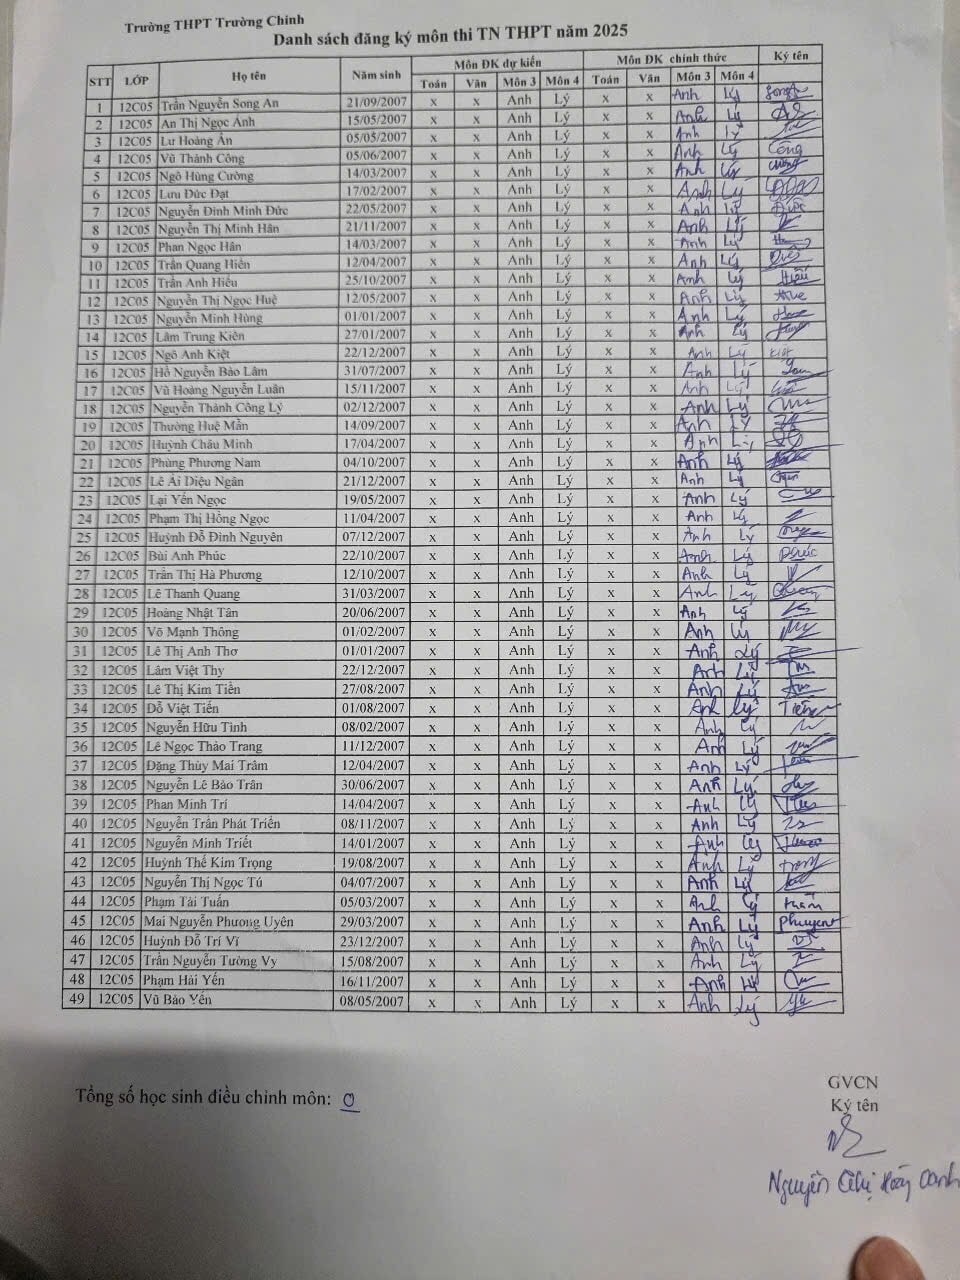 Trường THPT Trường Chinh
Danh sách đăng ký môn thi TN THPT năm 2025
STT LỚP Họ tên Năm sinh Môn ĐK dự kiến Môn ĐK chính thức Ký tên
Toán Văn Môn 3 Môn 4 Toán Văn Môn 3 Môn 4
1 12C05 Trần Nguyễn Song An 21/09/2007 x x Anh Lý x x Anh Lý
2 12C05 An Thị Ngọc Ánh 15/05/2007 x x Anh Lý x x Anh Lý
3 12C05 Lư Hoàng Ân 05/05/2007 x x Anh Lý x x Anh Lý
4 12C05 Vũ Thành Công 05/06/2007 x x Anh Lý x x Anh Lý Công
5 12C05 Ngô Hùng Cường 14/03/2007 x x Anh Lý x x Anh Lý
6 12C05 Lưu Đức Đạt 17/02/2007 x x Anh Lý x x Anh Lý
7 12C05 Nguyễn Đình Minh Đức 22/05/2007 x x Anh Lý x x Anh Lý
8 12C05 Nguyễn Thị Minh Hân 21/11/2007 x x Anh Lý x x Anh Lý
9 12C05 Phan Ngọc Hân 14/03/2007 x x Anh Lý x x Anh Lý
10 12C05 Trần Quang Hiên 12/04/2007 x x Anh Lý x x Anh Lý
11 12C05 Trần Anh Hiếu 25/10/2007 x x Anh Lý x x Anh Lý Hiếu
12 12C05 Nguyễn Thị Ngọc Huệ 12/05/2007 x x Anh Lý x x Anh Lý Hue
13 12C05 Nguyễn Minh Hùng 01/01/2007 x x Anh Lý x x Anh Lý
14 12C05 Lâm Trung Kiên 27/01/2007 x x Anh Lý x x Anh Lý
15 12C05 Ngô Anh Kiệt 22/12/2007 x x Anh Lý x x Anh Lý Kiệt
16 12C05 Hồ Nguyễn Bảo Lâm 31/07/2007 x x Anh Lý x x Anh Lý
17 12C05 Vũ Hoàng Nguyễn Luân 15/11/2007 x x Anh Lý x x Anh Lý
18 12C05 Nguyễn Thành Công Lý 02/12/2007 x x Anh Lý x x Anh Lý
19 12C05 Thường Huệ Mẫn 14/09/2007 x x Anh Lý x x Anh Lý
20 12C05 Huỳnh Châu Minh 17/04/2007 x x Anh Lý x x Anh Lý
21 12C05 Phùng Phương Nam 04/10/2007 x x Anh Lý x x Anh Lý
22 12C05 Lê Ái Diệu Ngân 21/12/2007 x x Anh Lý x x Anh Lý
23 12C05 Lại Yến Ngọc 19/05/2007 x x Anh Lý x x Anh Lý
24 12C05 Phạm Thị Hồng Ngọc 11/04/2007 x x Anh Lý x x Anh Lý
25 12C05 Huỳnh Đỗ Đình Nguyên 07/12/2007 x x Anh Lý x x Anh Lý
26 12C05 Bùi Anh Phúc 22/10/2007 x x Anh Lý x x Anh Lý Phúc
27 12C05 Trần Thị Hà Phương 12/10/2007 x x Anh Lý x x Anh Lý
28 12C05 Lê Thanh Quang 31/03/2007 x x Anh Lý x x Anh Lý
29 12C05 Hoàng Nhật Tân 20/06/2007 x x Anh Lý x x Anh Lý
30 12C05 Võ Mạnh Thông 01/02/2007 x x Anh Lý x x Anh Lý
31 12C05 Lê Thị Anh Thơ 01/01/2007 x x Anh Lý x x Anh Lý
32 12C05 Lâm Việt Thy 22/12/2007 x x Anh Lý x x Anh Lý
33 12C05 Lê Thị Kim Tiền 27/08/2007 x x Anh Lý x x Anh Lý
34 12C05 Đỗ Việt Tiến 01/08/2007 x x Anh Lý x x Anh Lý Tiến
35 12C05 Nguyễn Hữu Tình 08/02/2007 x x Anh Lý x x Anh Lý
36 12C05 Lê Ngọc Thảo Trang 11/12/2007 x x Anh Lý x x Anh Lý
37 12C05 Đặng Thùy Mai Trâm 12/04/2007 x x Anh Lý x x Anh Lý
38 12C05 Nguyễn Lê Bảo Trân 30/06/2007 x x Anh Lý x x Anh Lý
39 12C05 Phan Minh Trí 14/04/2007 x x Anh Lý x x Anh Lý
40 12C05 Nguyễn Trần Phát Triển 08/11/2007 x x Anh Lý x x Anh Lý
41 12C05 Nguyễn Minh Triết 14/01/2007 x x Anh Lý x x Anh Lý
42 12C05 Huỳnh Thế Kim Trọng 19/08/2007 x x Anh Lý x x Anh Lý
43 12C05 Nguyễn Thị Ngọc Tú 04/07/2007 x x Anh Lý x x Anh Lý
44 12C05 Phạm Tài Tuấn 05/03/2007 x x Anh Lý x x Anh Lý
45 12C05 Mai Nguyễn Phương Uyên 29/03/2007 x x Anh Lý x x Anh Lý
46 12C05 Huỳnh Đỗ Trí Vĩ 23/12/2007 x x Anh Lý x x Anh Lý
47 12C05 Trần Nguyễn Tường Vy 15/08/2007 x x Anh Lý x x Anh Lý
48 12C05 Phạm Hải Yến 16/11/2007 x x Anh Lý x x Anh Lý
49 12C05 Vũ Bảo Yến 08/05/2007 x x Anh Lý x x Anh Lý
Tổng số học sinh điều chỉnh môn: 0
GVCN
Ký tên
Nguyễn Thị Oanh